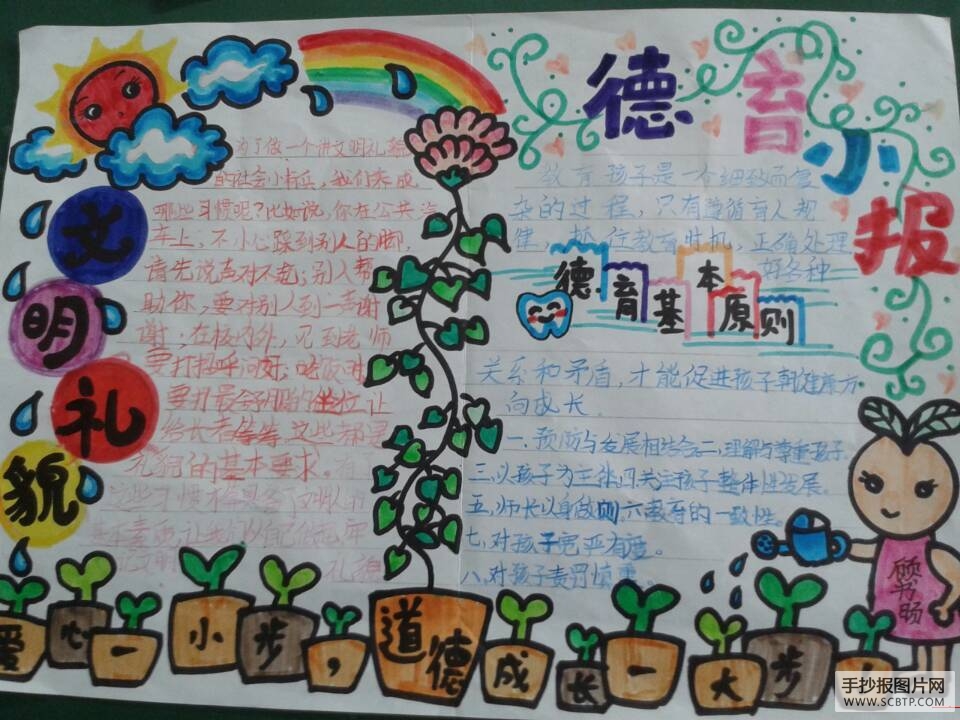 德育小报
文明礼貌
为了做一个讲文明礼貌
的社会小标兵,我们养成
哪些习惯呢?比如说,你在公共汽
车上,不小心踩到别人的脚,
请先说声对不起;别人帮
助你,要对别人到一声谢
谢;在校内外,见到老师
要打招呼问好;吃饭时
要把最舒服的坐位让
给长者等等,这些都是
礼貌的基本要求。有
这些习惯
教育孩子是一个细致而复
杂的过程,只有遵循育人规
律,抓住教育时机,正确处理
好各种
德育基本原则
关系和矛盾,才能促进孩子朝健康方
向成长
一.预防与发展相结合二.理解与尊重孩子.
三.以孩子为主体四.关注孩子整体性发展.
五.师长以身做则.六教育的一致性.
七.对孩子宽严有爱.
八.对孩子责罚慎重.
顾书旸
爱心一小步,道德成长一大步
手抄报图片网
WWW.SCBTP.COM